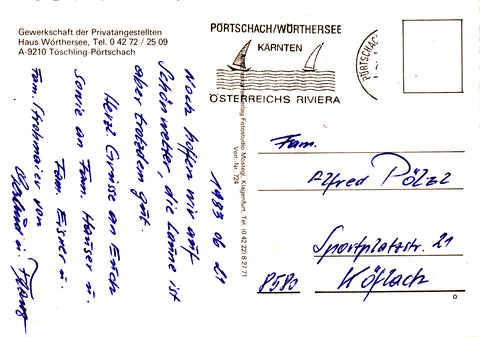 Gewerkschaft der Privatangestellten
Haus Wörthersee, Tel. 0 42 72 / 25 09
A-9210 Töschling-Pörtschach
PÖRTSCHACH/WÖRTHERSEE
KÄRNTEN
ÖSTERREICHS RIVIERA
PÖRTSCHACH
1983 06 21
Noch hoffen wir auf
Schönwetter, die Laune ist
aber trotzdem gut.
Herzl. Grüsse an Euch
sowie an Fam. Hauser u.
Fam. Eisner u.
Fam. Strohmaier von
u. Franz
Fotostudio Mostögl, Klagenfurt, Tel. (0 42 22) 8 27 71
Verl.-Nr. 724
Fam.
Alfred Pölzl
Sportplatzstr. 21
8580 Köflach